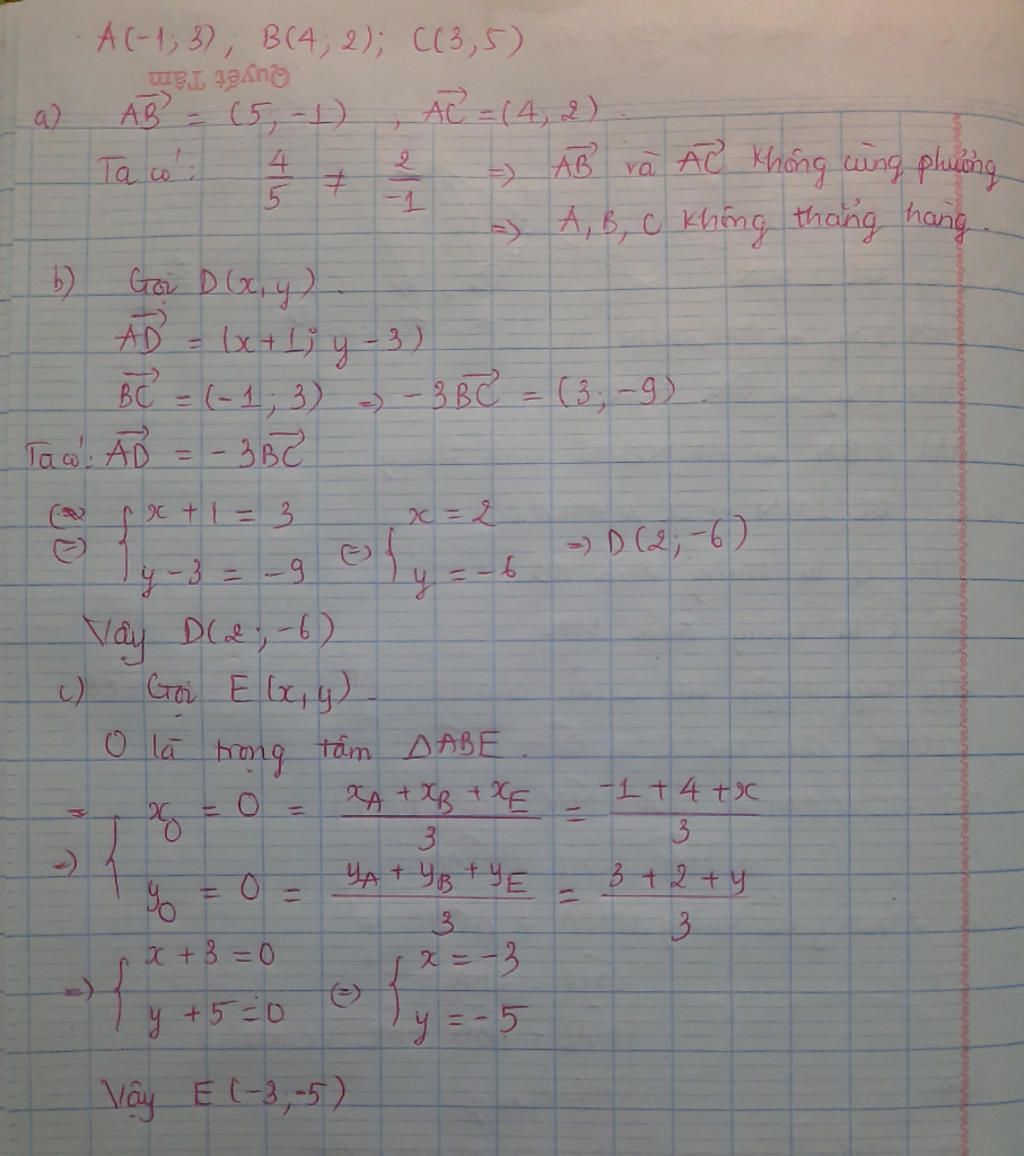 A(-1; 3), B(4; 2); C(3, 5)
Quyết Tâm
a) \overrightarrow{AB} = (5, -1), \overrightarrow{AC} = (4, 2).
Ta có: 4/5 ≠ 2/-1 => \overrightarrow{AB} và \overrightarrow{AC} không cùng phương
=> A, B, C không thẳng hàng.
b) Gọi D(x, y).
\overrightarrow{AD} = (x+1; y-3)
\overrightarrow{BC} = (-1; 3) => -3\overrightarrow{BC} = (3; -9).
Ta có: \overrightarrow{AD} = -3\overrightarrow{BC}
<=> { x + 1 = 3; y - 3 = -9 <=> { x = 2; y = -6 => D(2; -6)
Vậy D(2; -6)
c) Gọi E(x, y).
O là trọng tâm ΔABE.
=> { x_O = 0 = (x_A + x_B + x_E)/3 = (-1 + 4 + x)/3
y_O = 0 = (y_A + y_B + y_E)/3 = (3 + 2 + y)/3
=> { x + 3 = 0; y + 5 = 0 <=> { x = -3; y = -5
Vậy E(-3, -5)